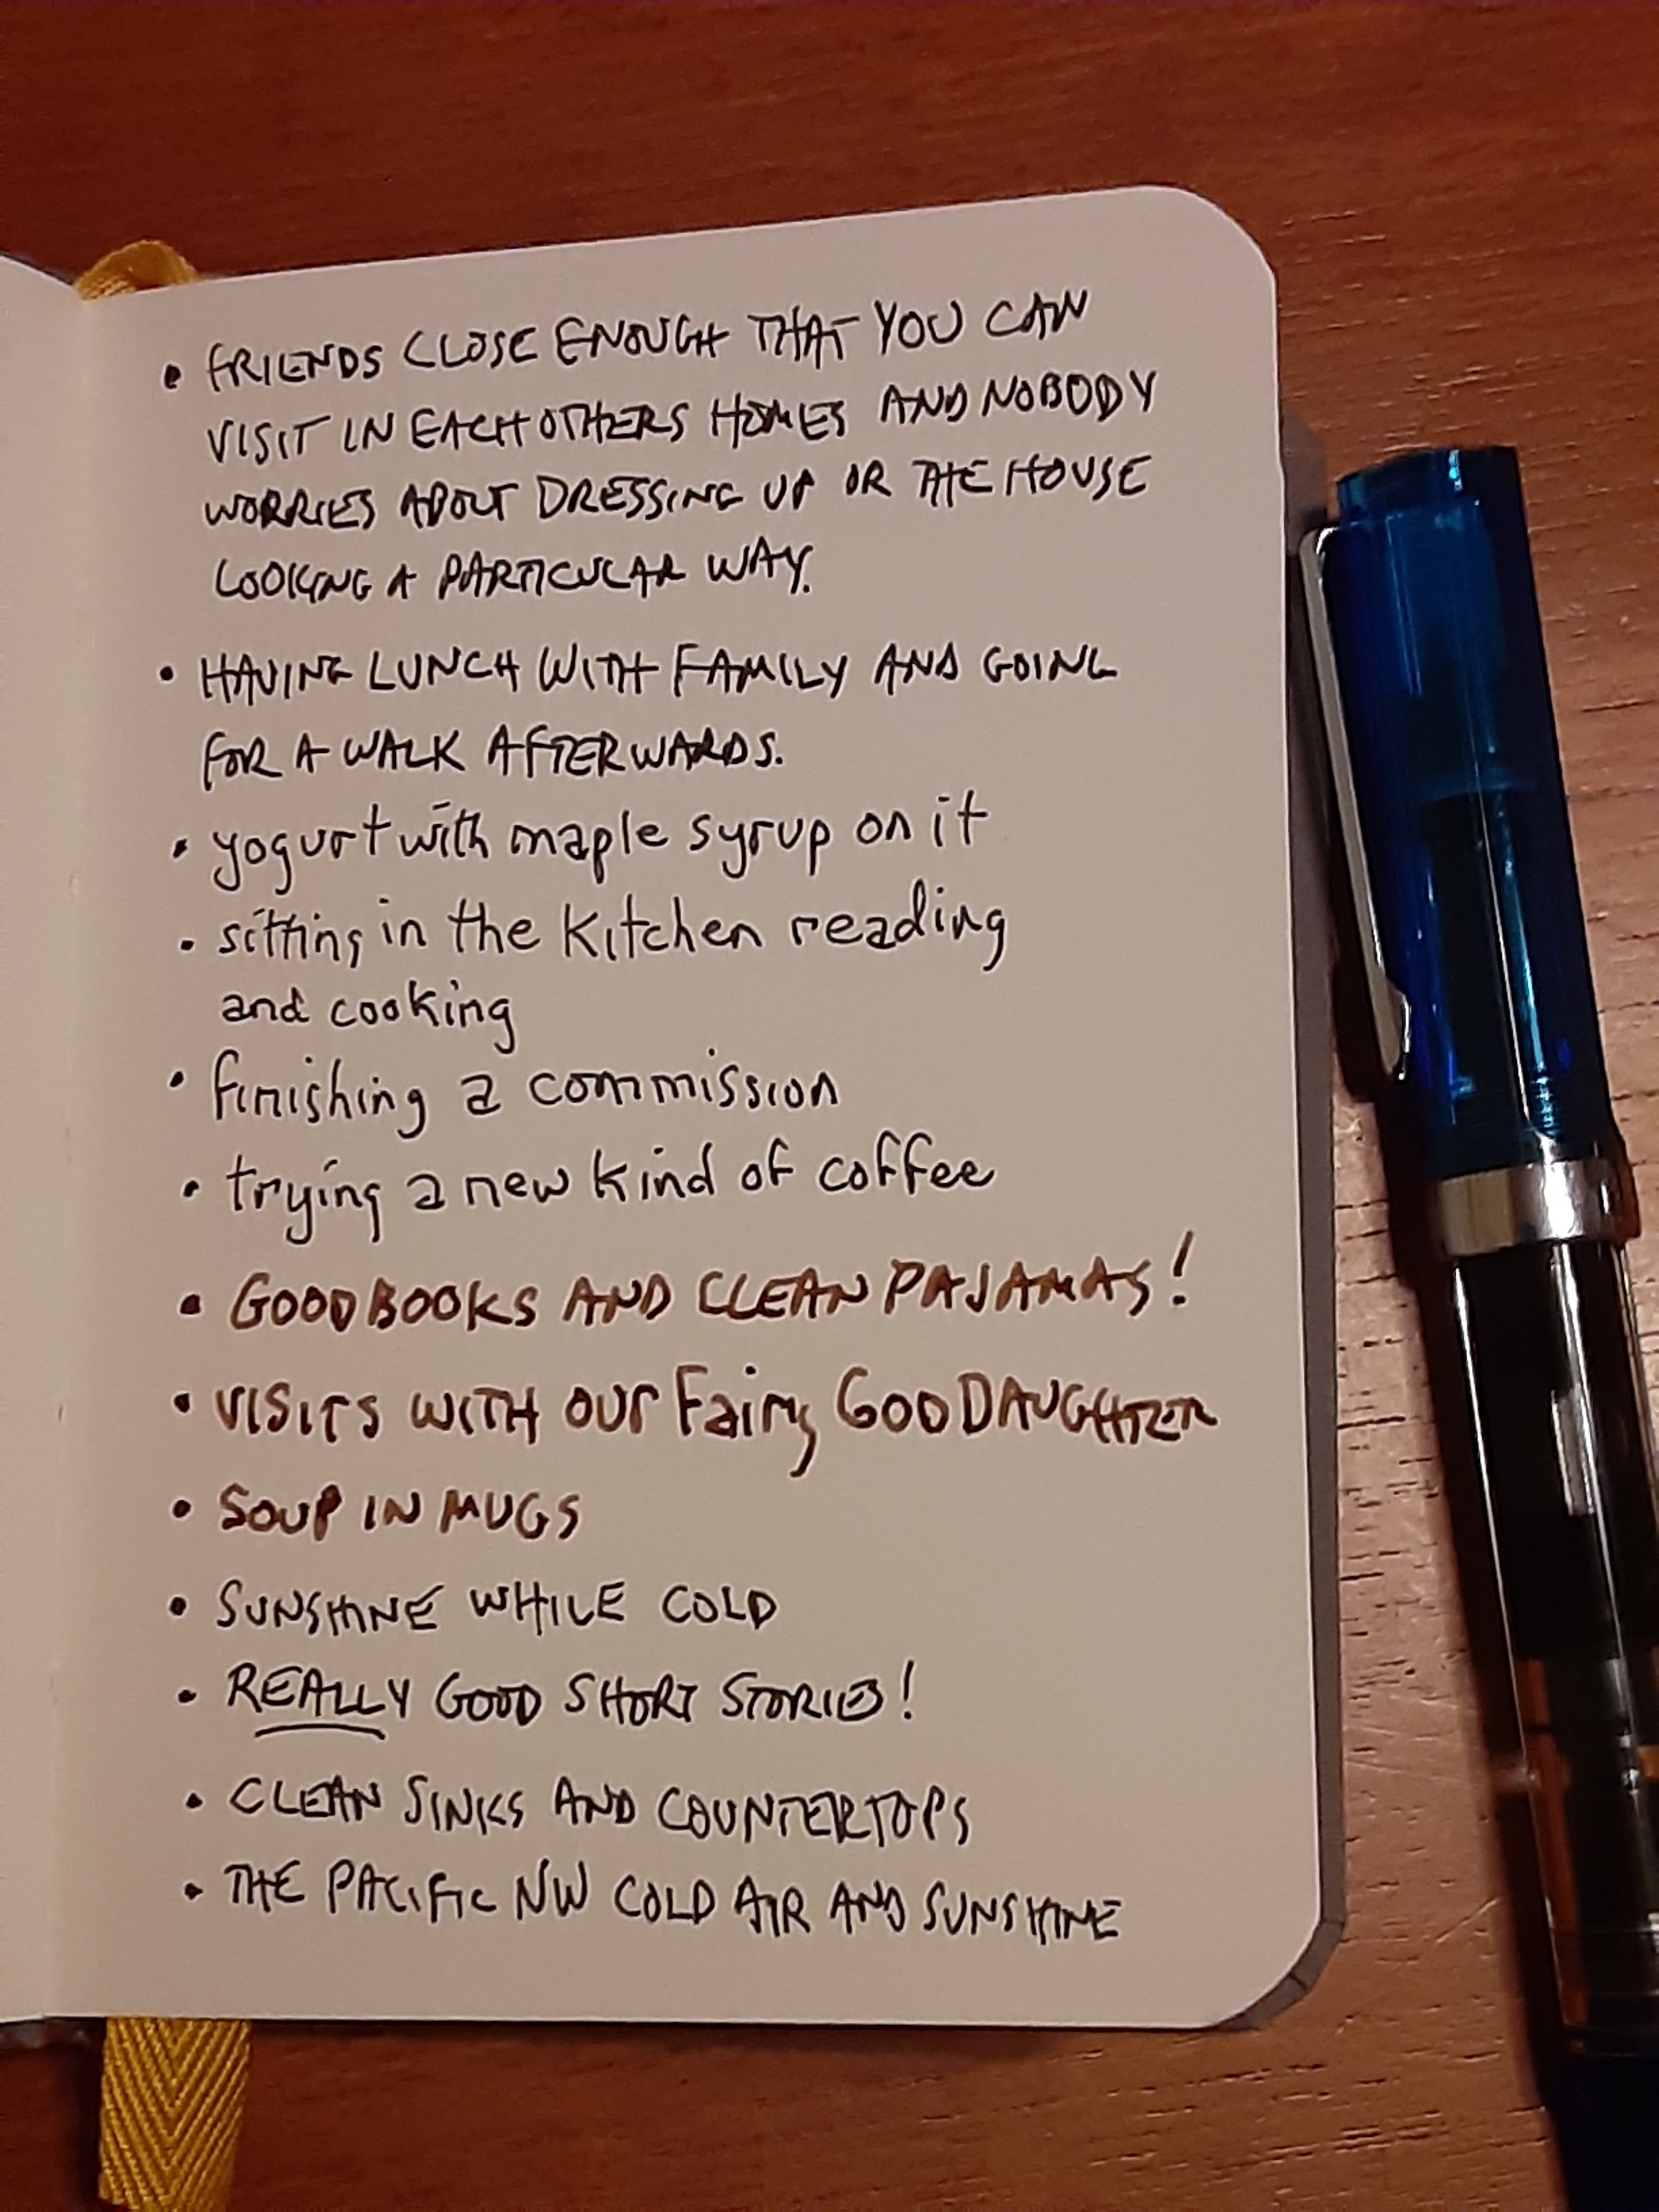 • FRIENDS CLOSE ENOUGH THAT YOU CAN
VISIT IN EACH OTHERS HOMES AND NOBODY
WORRIES ABOUT DRESSING UP OR THE HOUSE
LOOKING A PARTICULAR WAY.
• HAVING LUNCH WITH FAMILY AND GOING
FOR A WALK AFTERWARDS.
• yogurt with maple syrup on it
• sitting in the kitchen reading
and cooking
• finishing a commission
• trying a new kind of coffee
• GOOD BOOKS AND CLEAN PAJAMAS!
• VISITS WITH OUR Fairy GODDAUGHTER
• SOUP IN MUGS
• SUNSHINE WHILE COLD
• REALLY GOOD SHORT STORIES!
• CLEAN SINKS AND COUNTERTOPS
• THE PACIFIC NW COLD AIR AND SUNSHINE